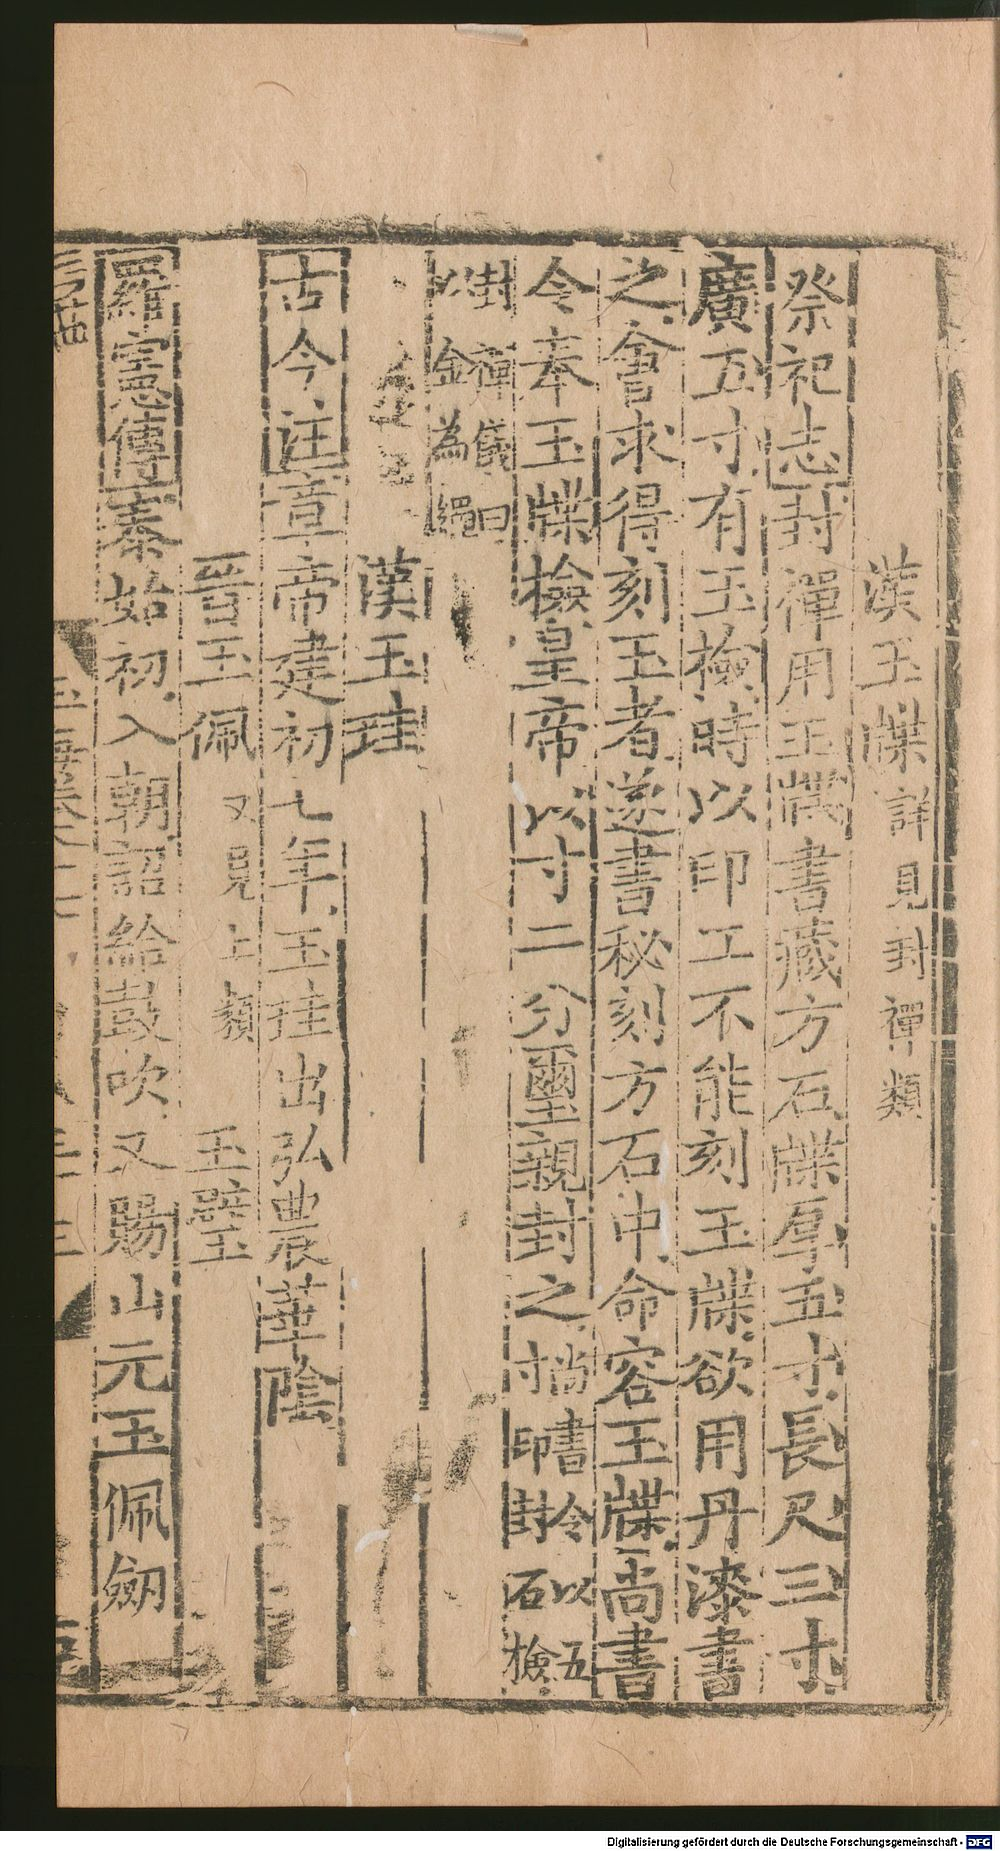 漢玉牒詳見封禪類
祭祀志封禪用玉牒書藏方石牒厚五寸長尺三寸
廣五寸有玉檢時以印工不能刻玉牒欲用丹漆書
之會求得刻玉者遂書秘刻方石中命容玉牒尚書
令奉玉牒檢皇帝以寸二分璽親封之尚書令以五
寸印封石檢
封禪儀曰
以金為繩
漢玉珪
古今註章帝建初七年玉珪出弘農華陰
晉玉佩又見上類 玉璧
羅憲傳泰始初入朝詔給鼓吹又賜山元玉佩劒
Digitalisierung gefördert durch die Deutsche Forschungsgemeinschaft - DFG